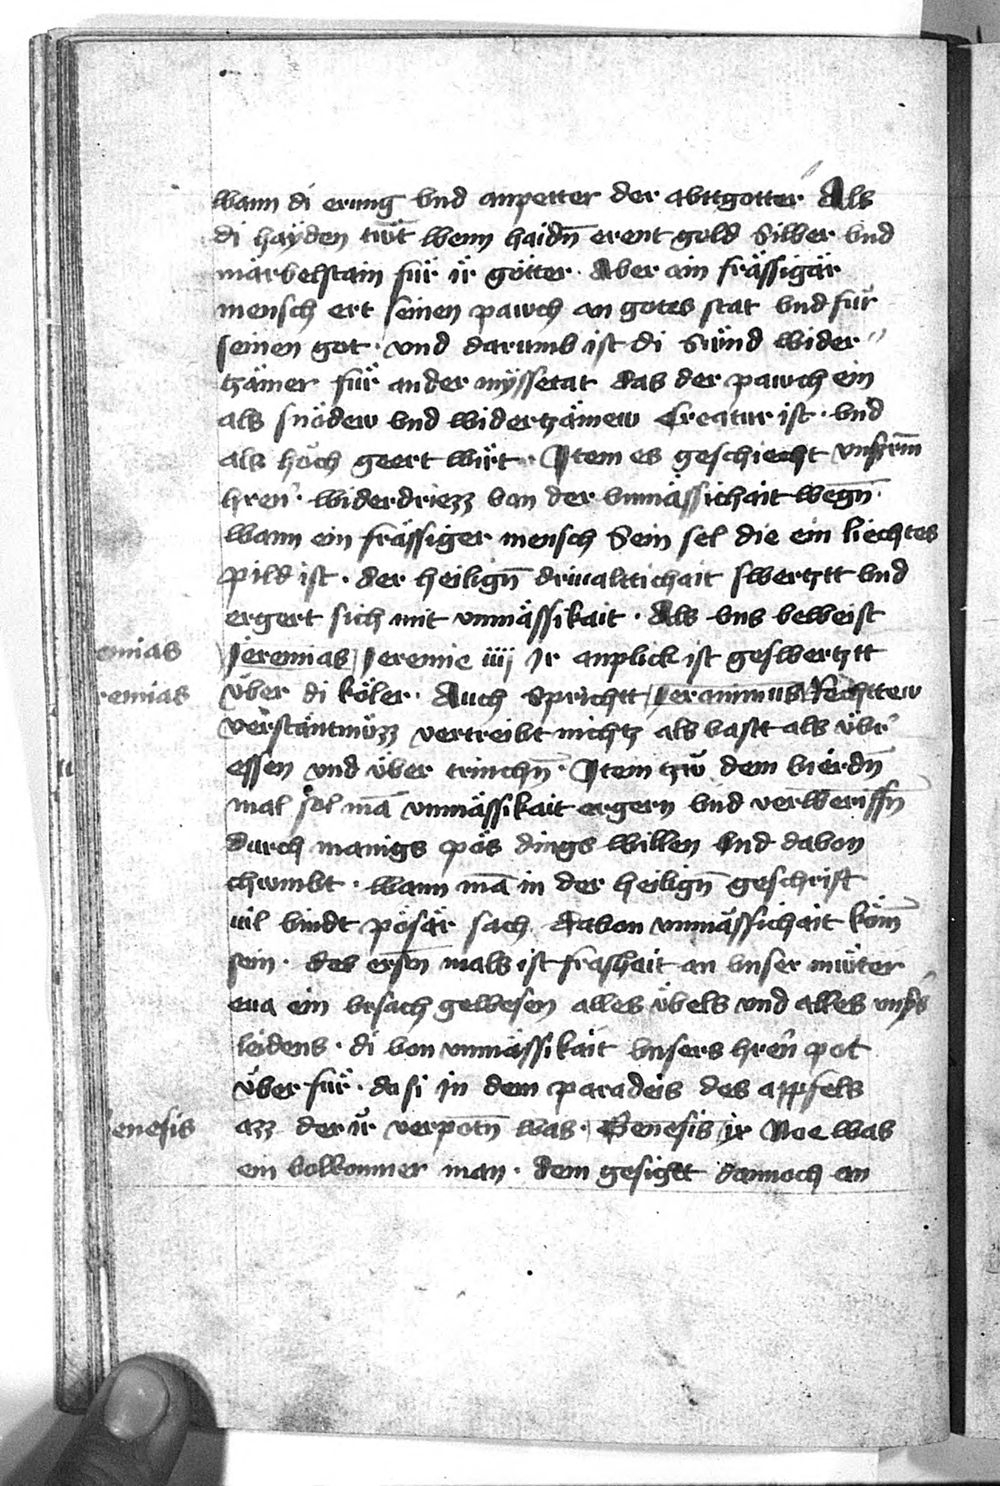 wann di erung vnd anpetter der abttgötter Als
di hayden tuͤt wenn haidn̄ erent gold Silber vnd
märbelstain für ir götter · Aber ain frässigär
mensch ert seinen pawch an gotes stat vnd für
seinen got · vnd darumb ist di Sünd wider
tzämer für ander myssetat das der pawch ein
als snödew vnd widertzämew Creatur ist · vnd
als höch geert wirt · Item es geschiecht vnserm̄
hren̄ · widerdriezz von der vnmässichait wegn̄ ·
wann ein frässiger mensch Sein sel die ein liechtes
pild ist · der heilign̄ driualttichait swertztt vnd
ergert sich mit vnmässikait · Als vns beweist
Jeremias Jeremie iiij Ir anplick ist geswertztt
über di köler · Auch Sprichtt Jeronimus Rechttew
verstäntnüzz vertreibt nichtz als vastt als übr̄
essen vnd über trinchn̄ · Item tzw dem vierdn̄
mal sol mā vnmässikait ergern vnd verwerffn̄
durch manigs pös dings willen Vnd davon
chumbt · wann mā in der heilign̄ geschrift
uil vindt pösär sach davon vnmässichait köm̄
sein · des ersn̄ mals ist frashait an vnser müter
eua ein vrsach gewesen alles übels vnd alles vnsrs
leidens · di von vnmässikait vnsers hren̄ pot
über für · do si in dem paradeis des appfels
azz der ir verpotn̄ was · Genesis ix Noe was
ein volkomner man · dem gesigtt dannoch an
emias
remias
enesis